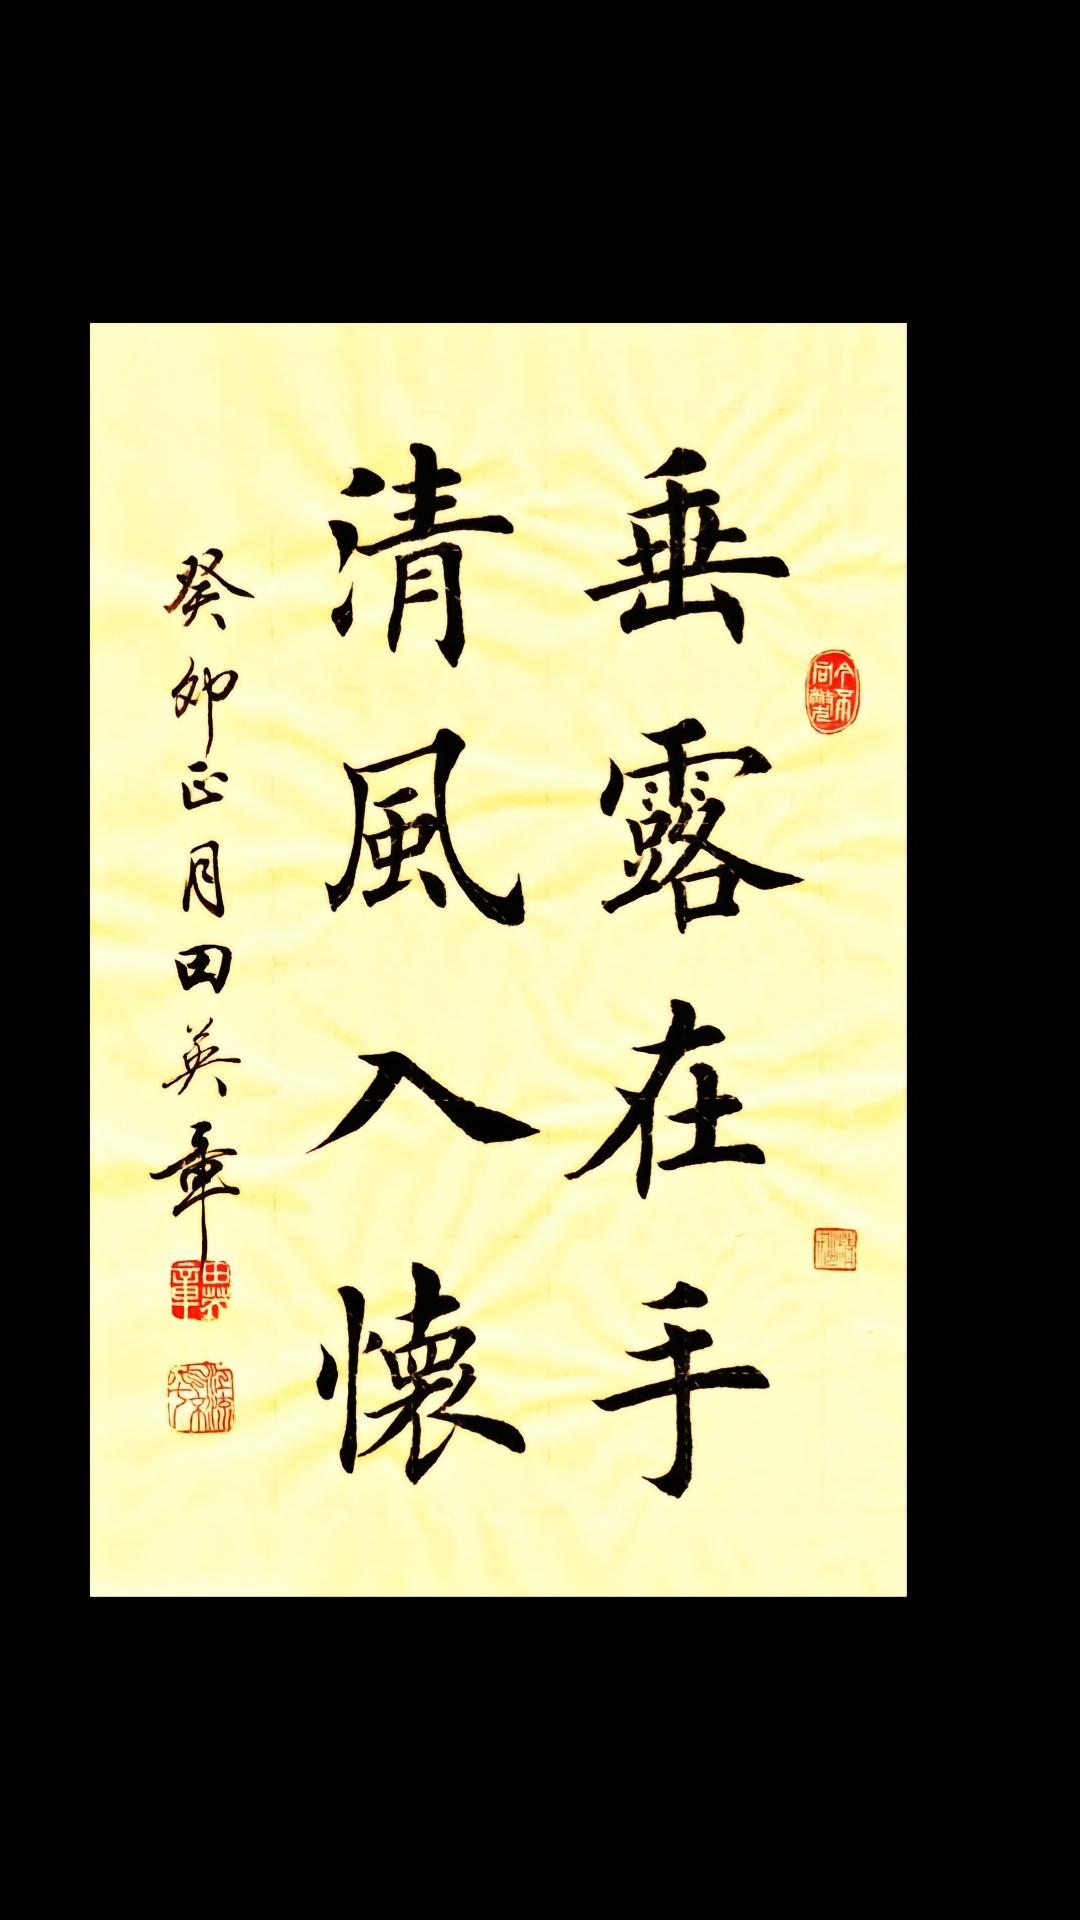 垂露在手
清風入懷
癸卯正月田英章
田英章